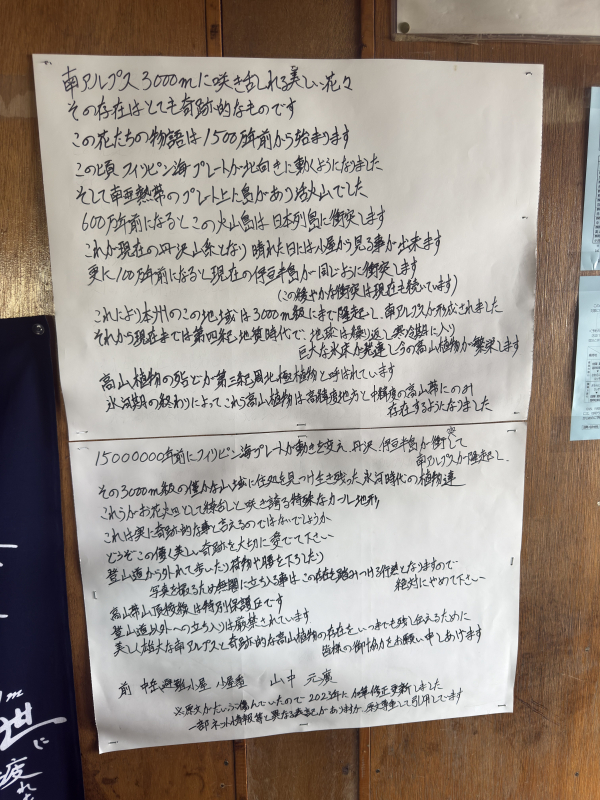 南アルプス3000mに咲き乱れる美しい花々
その存在はとても奇跡的なものです
この花たちの物語は1500万年前から始まります
この頃フィリピン海プレートが北向きに動くようになりました
そして南亜熱帯のプレート上に島があり活火山でした
600万年前になるとこの火山島は日本列島に衝突します
これが現在の丹沢山系となり晴れた日には小屋から見る事が出来ます
更に100万年前になると現在の伊豆半島が同じように衝突します
(この緩やかな衝突は現在も続いています)
これにより本州のこの地域は3000m級にまで隆起し、南アルプスが形成されました
それから現在までは第四紀地質時代で、地球は繰り返し寒冷期に入り
巨大な氷床が発達し今の高山植物が繁栄します
高山植物の殆どが第三紀周北極植物と呼ばれています
氷河期の終わりによってこれら高山植物は高緯度地方と中緯度の高山帯にのみ
存在するようになりました
15000000年前にフィリピン海プレートが動きを変え、丹沢、伊豆半島が衝突して
南アルプスが隆起し、
その3000m級の僅かな山域に住処を見つけ生き残った氷河時代の植物達
これらがお花畑として繚乱しと咲き誇る特殊なカール地形
これは実に奇跡的な事と言えるのではないでしょうか
どうぞこの儚く美しい奇跡を大切に愛でて下さい
登山道から外れて歩いたり荷物や腰を下ろしたり
写真を撮るため無闇に立ち入る事はこの存在を踏みつける行為となりますので
絶対にやめて下さい
高山帯山頂稜線は特別保護区です
登山道以外への立ち入りは厳禁されています
美しく雄大な南アルプスと奇跡的な高山植物の存在をいつまでも残し伝えるために
皆様の御協力をお願い申しあげます
前 中岳避難小屋 小屋番 山中 元廣
※原文がだいぶ傷んでいたので2023年に加筆修正更新しました
一部ネット情報等と異なる表記がありますが、原文尊重して引用しています
m
世に
疲れた